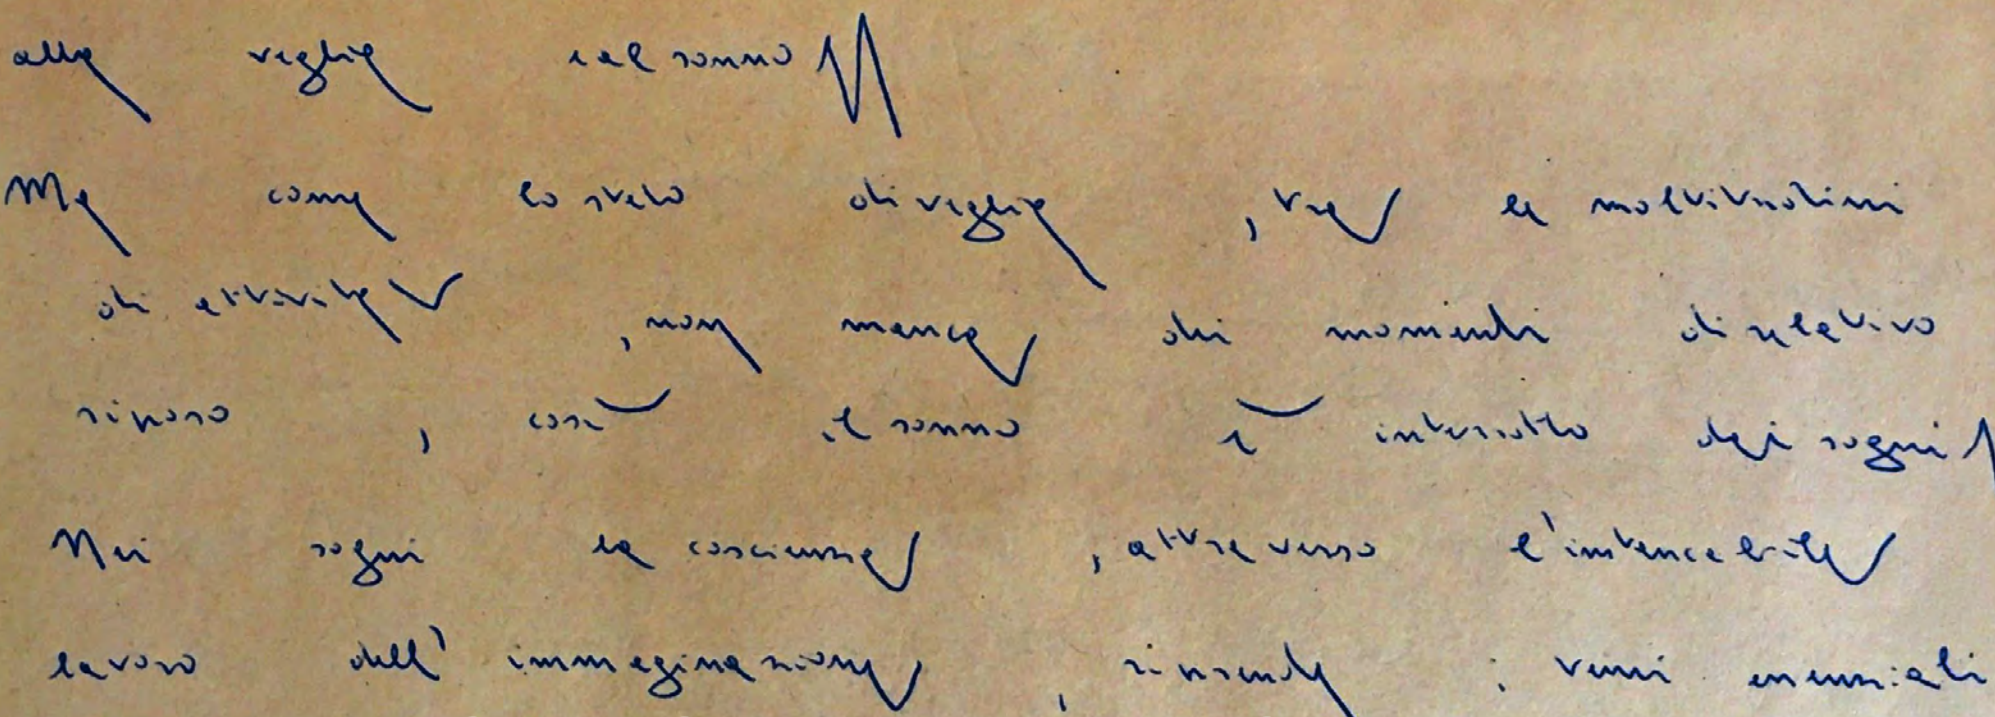 alla veglia e al sonno.
Ma come lo stato di veglia, tra le moltitudini
di attività, non manca di momenti di relativo
riposo, così il sonno è interrotto dai sogni.
Nei sogni la coscienza, attraverso l'instancabile
lavoro dell'immaginazione, riprende i temi essenziali